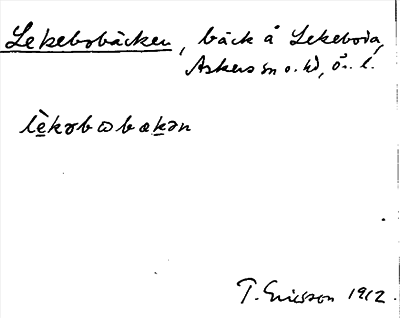 Lekebobäcken, bäck å Lekeboda,
Askers sn o. hd, ö. l.
lèkəbωbækən
T. Ericsson 1912.